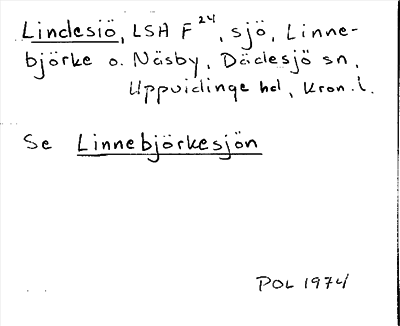 Lindesiö, LSA F 24, sjö, Linne-
björke o. Näsby, Dädesjö sn,
Uppvidinge hd, Kron.l.
Se Linnebjörkesjön
POL 1974